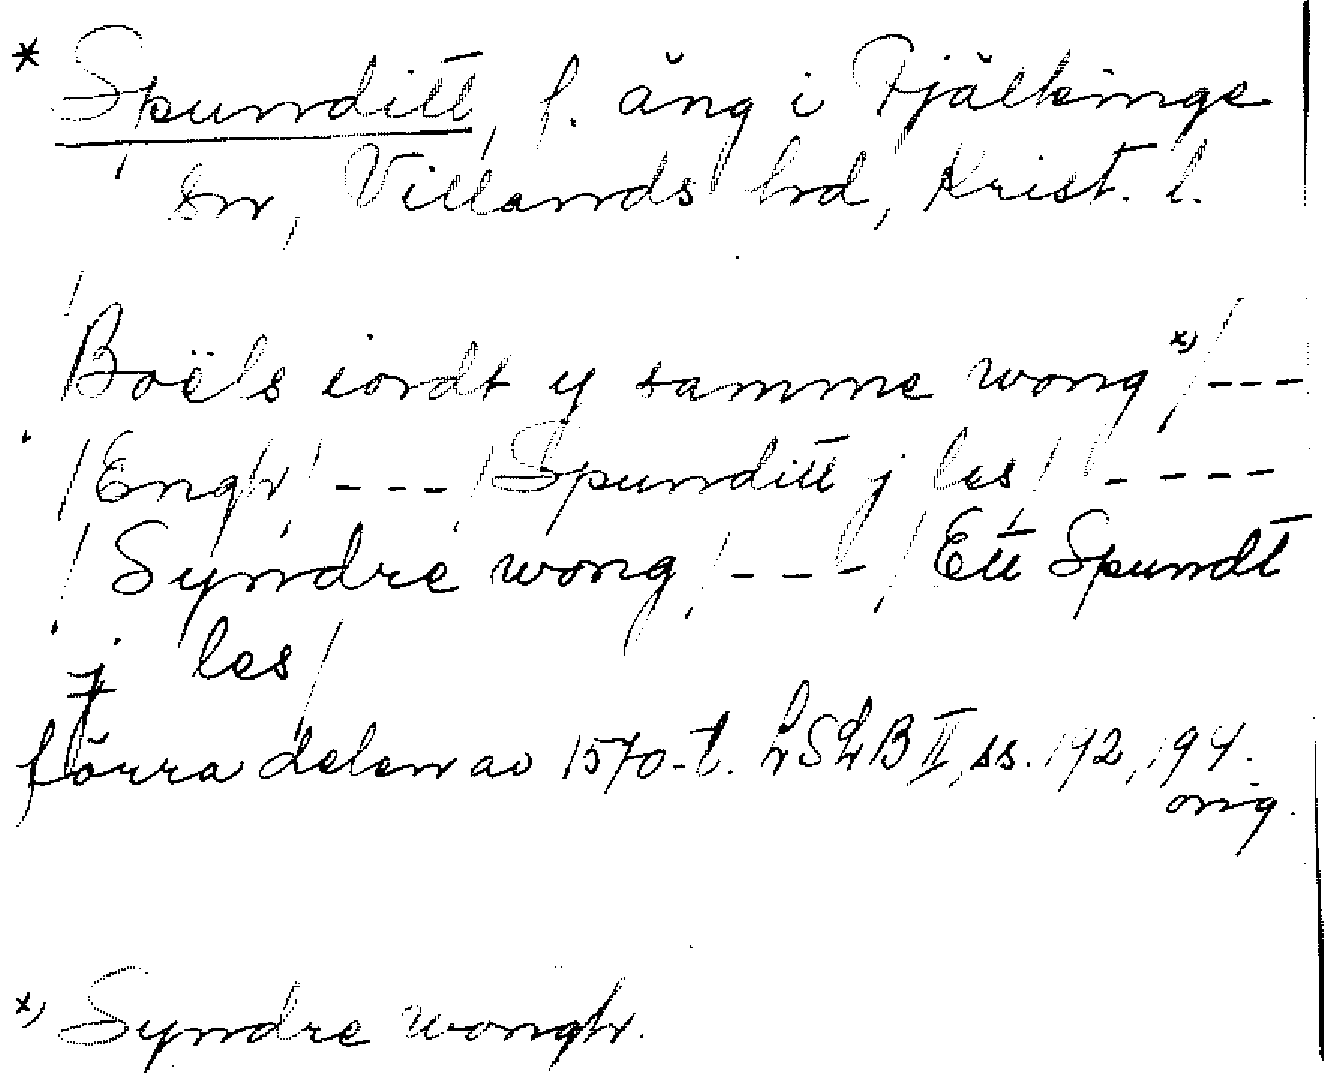 * Spunditt, f. äng i Fjälkinge
sn, Villands hd, Krist. l.
Boëls iordt y samme wong x) / ---
/ Engh / --- / Spunditt j les / ----
/ Syndre wong / --- / Ett Spundt
j les /
förra delen av 1570-t. LSLB II, ss. 192, 194.
orig.
x) Syndre wongh.